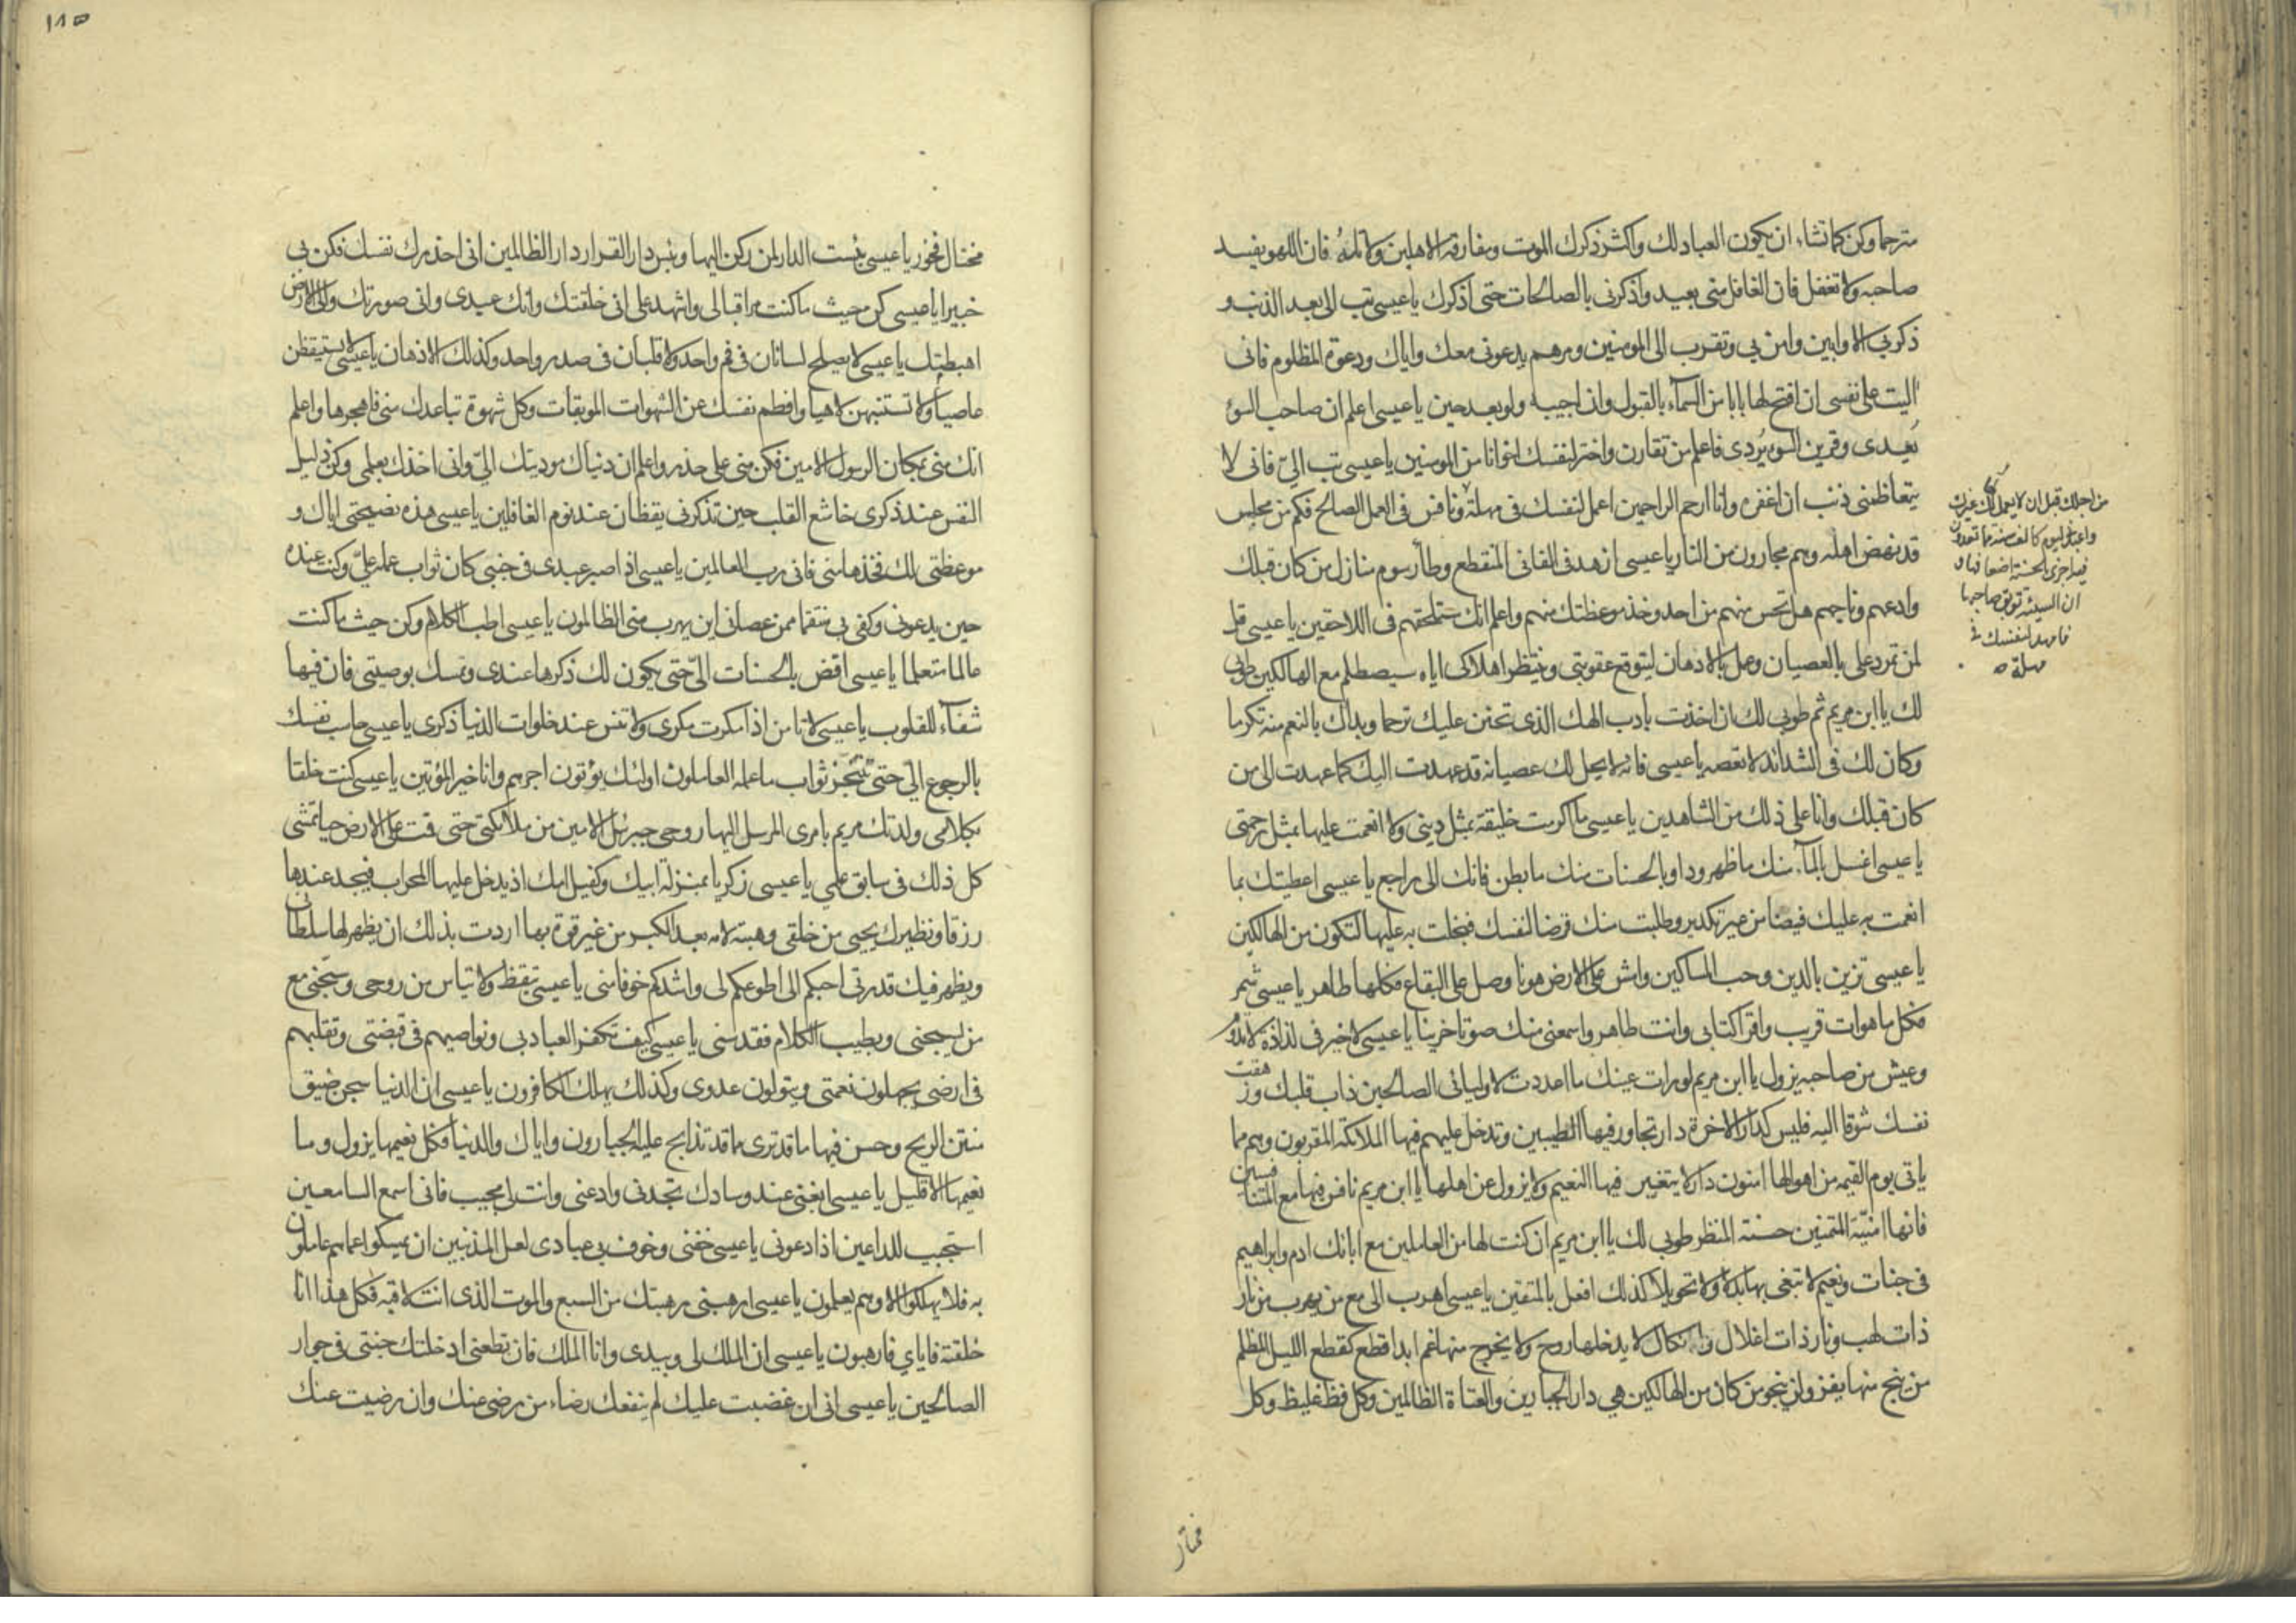 مترحما وكن كما تشاء ان يكون العباد لك واكثر ذكرك الموت ومفارقة الاهلين ولا تله فان اللهو يفسد
صاحبه ولا تغفل فان الغافل مني بعيد واذكرني بالصالحات حتى اذكرك يا عيسى تب الي بعد الذنب و
ذكر بي الاوابين وامن بي وتقرب الى المومنين ومرهم يدعوني معك واياك ودعوة المظلوم فاني
اليت على نفسي ان افتح لها بابا من السماء بالقبول وان اجيبه ولو بعد حين يا عيسى اعلم ان صاحب السوء
يعدى وقرين السوء يردى فاعلم من تقارن واختر لنفسك اخوانا من المومنين يا عيسى تب الي فاني لا
يتعاظمني ذنب ان اغفره وانا ارحم الراحمين اعمل لنفسك في مهلة ونافس في العمل الصالح فكم من مجلس
من اجلك قبل ان لا يعمل لك غيرك
واعبدني ليوم كالف سنة مما تعدون
فيه اجزى بالحسنة اضعافها و
ان السيئة توبق صاحبها
فامهد لنفسك في
مهلة
قد نهض اهله وهم مجارون من النار يا عيسى ازهد في الفاني المنقطع وطأ رسوم منازل من كان قبلك
وادعهم وناجهم هل تحس منهم من احد وخذ موعظتك منهم واعلم انك ستلحقهم في اللاحقين يا عيسى قل
لمن تمرد علي بالعصيان وعمل بالادهان ليتوقع عقوبتي وينتظر اهلاكى اياه سيصطلم مع الهالكين طوبى
لك يا ابن مريم ثم طوبى لك ان اخذت بأدب الهك الذي تحنن عليك ترحما وبداك بالنعم منه تكرما
وكان لك في الشدائد لا تعصه يا عيسى فانه لا يحل لك عصيانه قد عهدت اليك كما عهدت الى من
كان قبلك وانا على ذلك من الشاهدين يا عيسى ما اكرمت خليقة بمثل ديني ولا انعمت عليها بمثل رحمتي
يا عيسى اغسل بالماء منك ما ظهر وداو بالحسنات منك ما بطن فانك الى راجع يا عيسى اعطيتك بما
انعمت به عليك فيضا من غير تكدير وطلبت منك قرضا لنفسك فبخلت به عليها لتكون من الهالكين
يا عيسى تزين بالدين وحب المساكين وامش على الارض هونا وصل على البقاع فكلها طاهر يا عيسى شمر
فكل ما هو ات قريب واقرا كتابي وانت طاهر واسمعني منك صوتا حزينا يا عيسى لا خير في لذاذة لا تدوم
وعيش من صاحبه يزول يا ابن مريم لو رات عينك ما اعددت لاوليائي الصالحين ذاب قلبك وزهقت
نفسك شوقا اليه فليس كدار الاخرة دار تجاور فيها الطيبين وتدخل عليهم فيها الملائكة المقربون وهم مما
ياتي يوم القيمة من اهوالها امنون دار لا يتغير فيها النعيم ولا يزول عن اهلها يا ابن مريم نافس فيها مع المتنافسين
فانها امنية المتمنين حسنة المنظر طوبى لك يا ابن مريم ان كنت لها من العاملين مع ابائك ادم وابراهيم
في جنات ونعيم لا تبغى بها بدلا ولا تحويلا كذلك افعل بالمتقين يا عيسى اهرب الى مع من يهرب من نار
ذات لهب ونار ذات اغلال وانكال لا يدخلها روح ولا يخرج منها غم ابدا قطع كقطع الليل المظلم
من ينج منها يفز ولن ينجو من كان من الهالكين هي دار الجبارين والعتاة الظالمين وكل فظ غليظ وكل
مختار
١١٥
مختال فخور يا عيسى بئست الدار لمن ركن اليها وبئس دار القرار دار الظالمين اني احذرك نفسك فكن بي
خبيرا يا عيسى كن حيث ما كنت مراقبا لى واشهد على اني خلقتك وانك عبدى واني صورتك والى الارض
اهبطتك يا عيسى لا يصلح لسانان في فم واحد ولا قلبان في صدر واحد وكذلك الاذهان يا عيسى لا تستيقظن
عاصيا ولا تستنبهن لاهيا وافطم نفسك عن الشهوات الموبقات وكل شهوة تباعدك مني فاهجرها واعلم
انك مني بمكان الرسول الامين فكن مني على حذر واعلم ان دنياك موديتك الي واني اخذك بعلمي وكن ذليل
النفس عند ذكرى خاشع القلب حين تذكرني يقظان عند نوم الغافلين يا عيسى هذه نصيحتي اياك و
موعظتي لك فخذها مني فاني رب العالمين يا عيسى اذا صبر عبدى في جنبي كان ثواب عمله علي وكنت عنده
حين يدعوني وكفى بي منتقما ممن عصاني اين يهرب مني الظالمون يا عيسى اطب الكلام وكن حيث ما كنت
عالما متعلما يا عيسى افض بالحسنات الي حتى يكون لك ذكرها عندى وتمسك بوصيتي فان فيها
شفاء للقلوب يا عيسى لا تامن اذا مكرت مكرى ولا تنس عند خلوات الدنيا ذكرى يا عيسى حاسب نفسك
بالرجوع الي حتى تتنجز ثواب ما عمله العاملون اولئك يؤتون اجرهم وانا خير المؤتين يا عيسى كنت خلقا
بكلامي ولدتك مريم بامرى المرسل اليها روحي جبرئيل الامين من ملائكتي حتى قمت على الارض حيا تمشى
كل ذلك في سابق علمي يا عيسى زكريا بمنزلة ابيك وكفيل امك اذ يدخل عليها المحراب فيجد عندها
رزقا ونظيرك يحيى من خلقي وهبته لامه بعد الكبر من غير قوة بها اردت بذلك ان يظهر لها سلطاني
ويظهر فيك قدرتي احبكم الى اطوعكم لى واشدكم خوفا مني يا عيسى تيقظ ولا تياس من روحي وسبحني مع
من يسبحني وبطيب الكلام فقدسني يا عيسى كيف تكفر العباد بي ونواصيهم في قبضتي وتقلبهم
في ارضى يجهلون نعمتي ويتولون عدوى وكذلك يهلك الكافرون يا عيسى ان الدنيا سجن ضيق
منتن الريح وحسن فيها ما قد ترى مما قد تذابح عليه الجبارون واياك والدنيا فكل نعيمها يزول وما
نعيمها الا قليل يا عيسى ابغني عند وسادك تجدني وادعني وانت لي محب فاني اسمع السامعين
استجيب للداعين اذا دعوني يا عيسى خفني وخوف بي عبادى لعل المذنبين ان يمسكوا عما هم عاملون
به فلا يهلكوا الا وهم يعلمون يا عيسى ارهبني رهبتك من السبع والموت الذى انت لاقيه فكل هذا انا
خلقته فاياي فارهبون يا عيسى ان الملك لي وبيدى وانا الملك فان تطعني ادخلتك جنتي في جوار
الصالحين يا عيسى اني ان غضبت عليك لم ينفعك رضاء من رضى عنك وان رضيت عنك